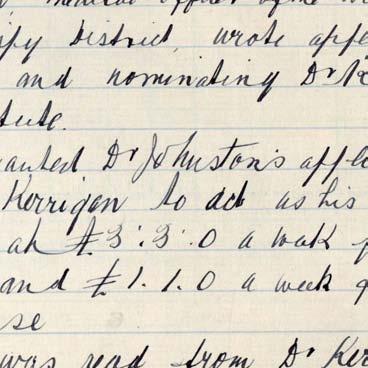 medical officer of the
District, wrote
and nominating Dr K
tute.
anted Dr Johnston's appl
Kerrigan to act as his
at £3:3:0 a week
and £1.1.0 a week
se
was read from Dr Ker